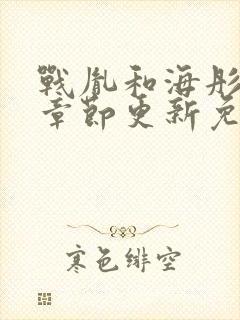 戰胤和海彤
章節更新免
寒色緋空